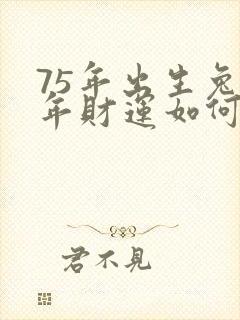 75年出生兔
年財運如何
君不見